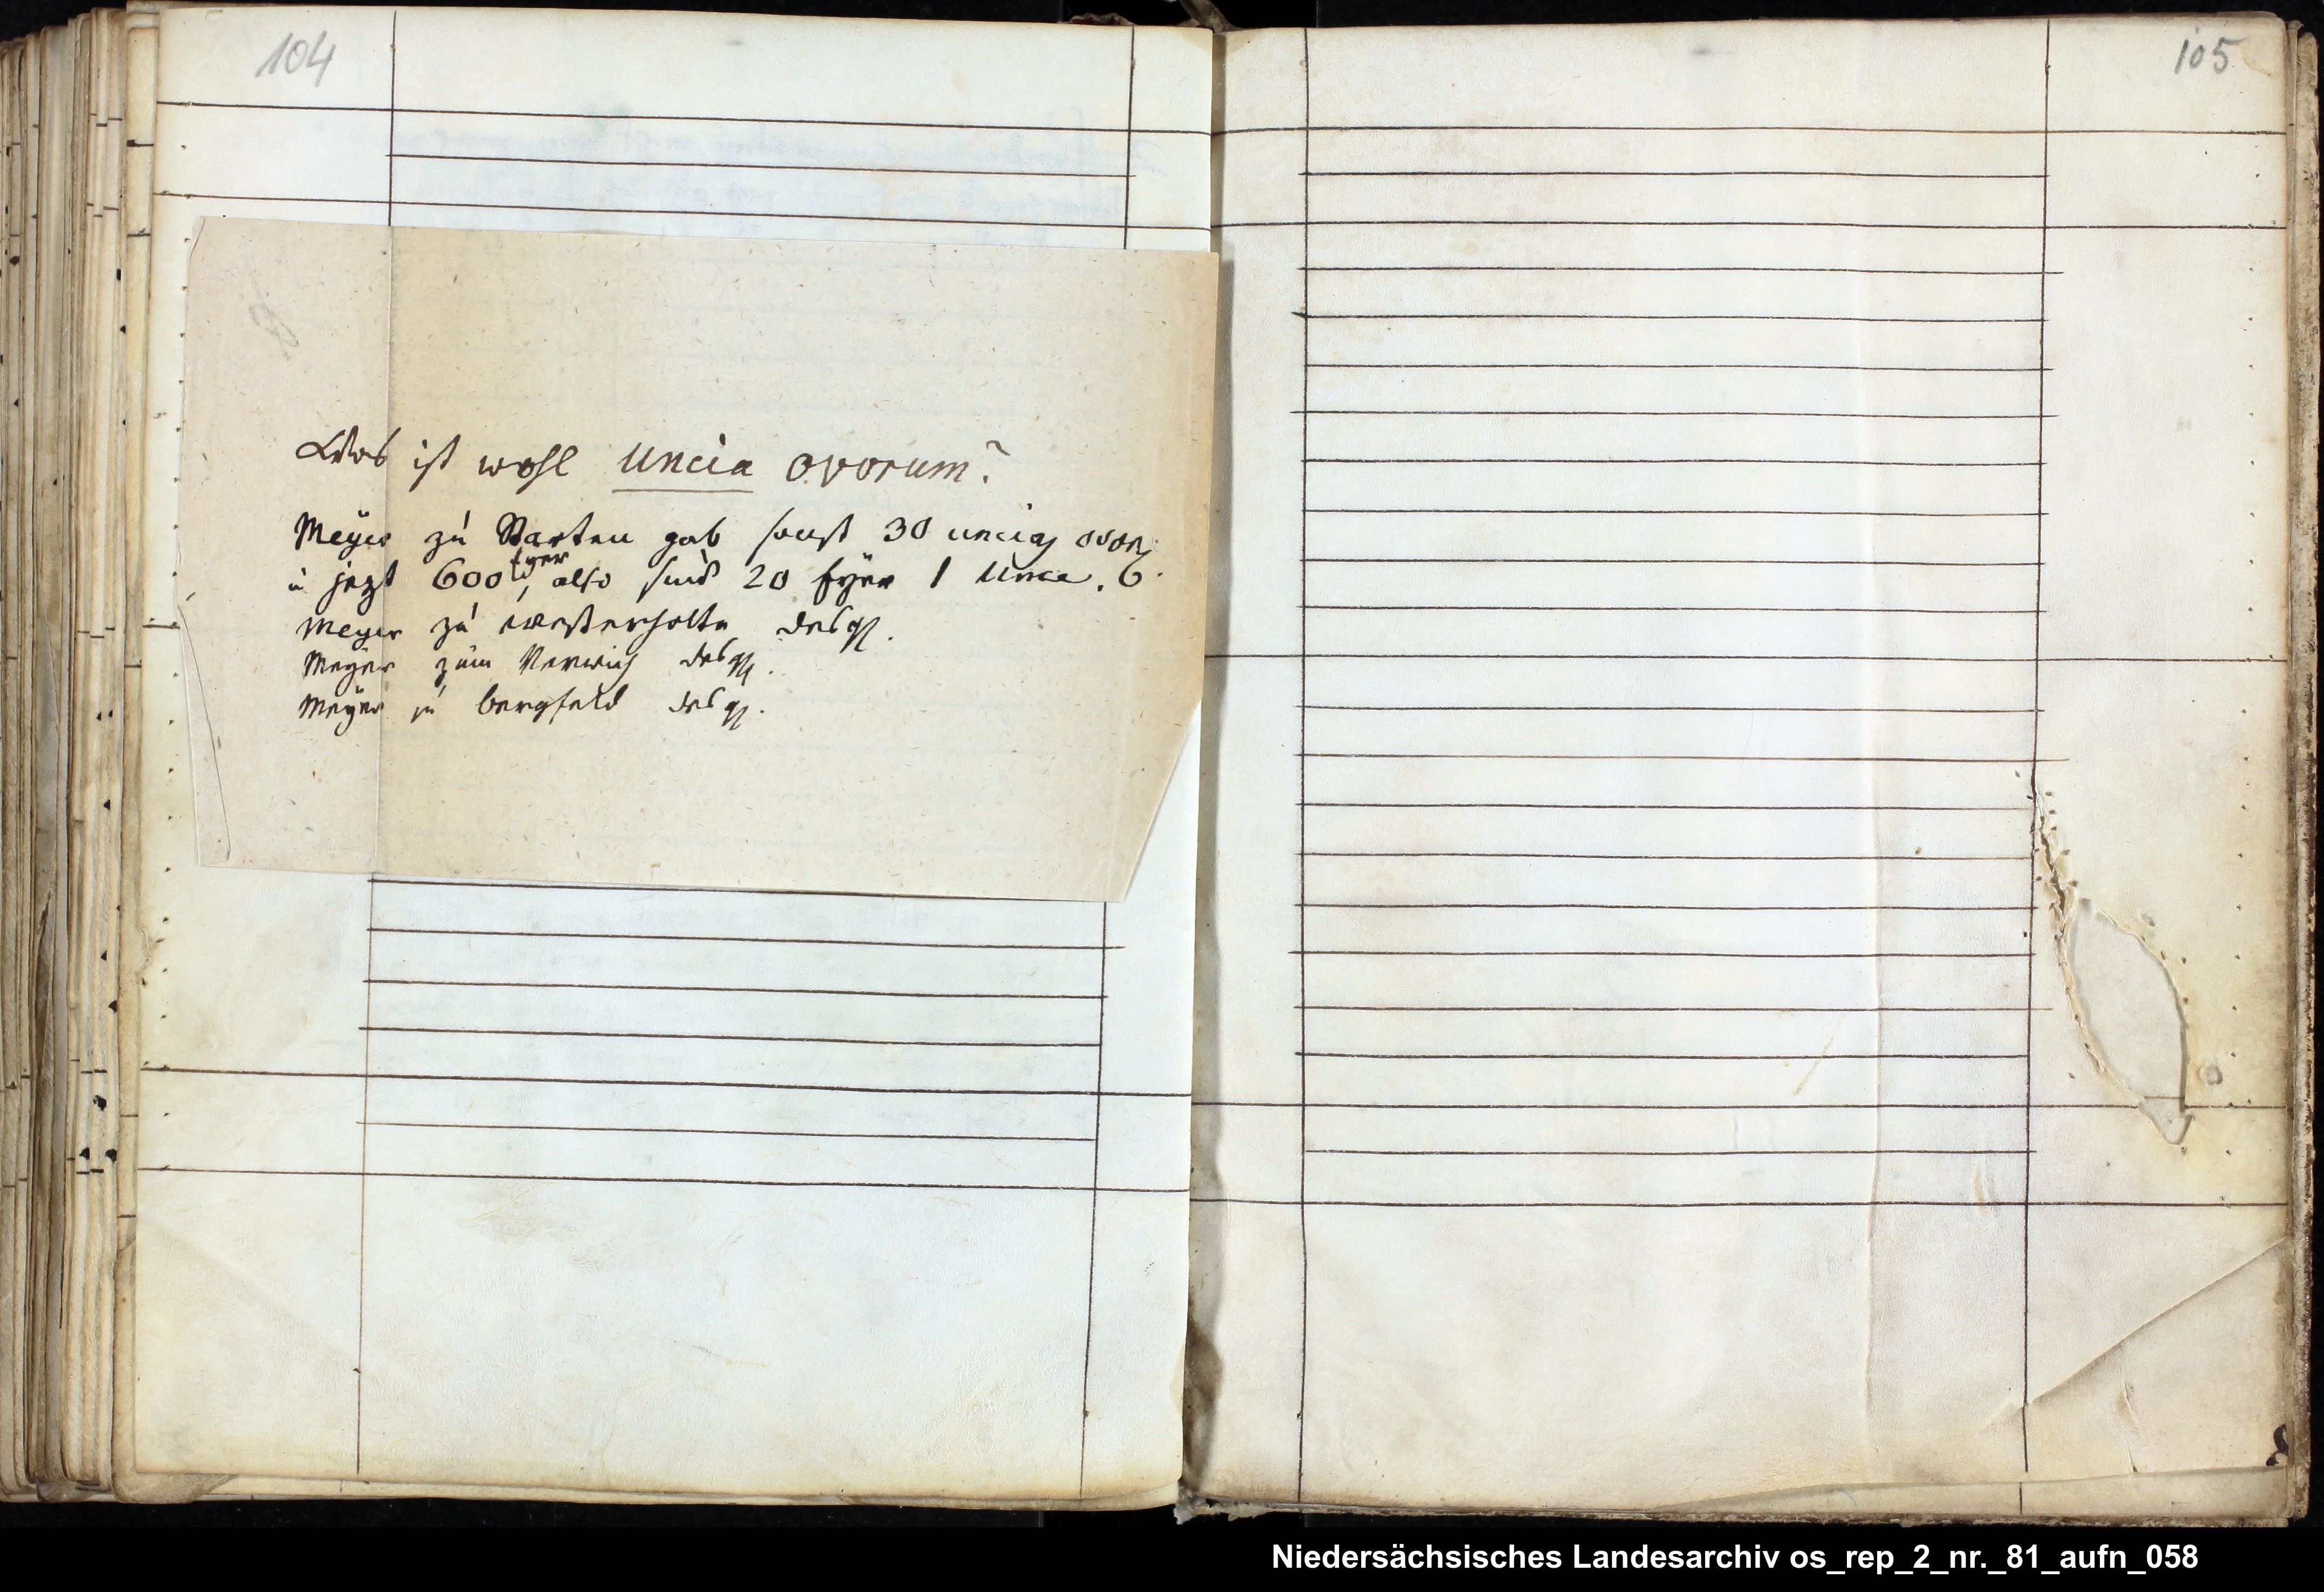 104
105
Was ist wohl uncia ovorum?
Meyer zu Starten gab sonst 30 uncias ovor.
u jezt 600 Eyer, also sind 20 Eyer 1 Unce.
Meyer zu westerholte desgl.
Meyer zum desgl.
Meyer zu bergfeld desgl.
Niedersächsisches Landesarchiv os_rep_2_nr._81_aufn_058